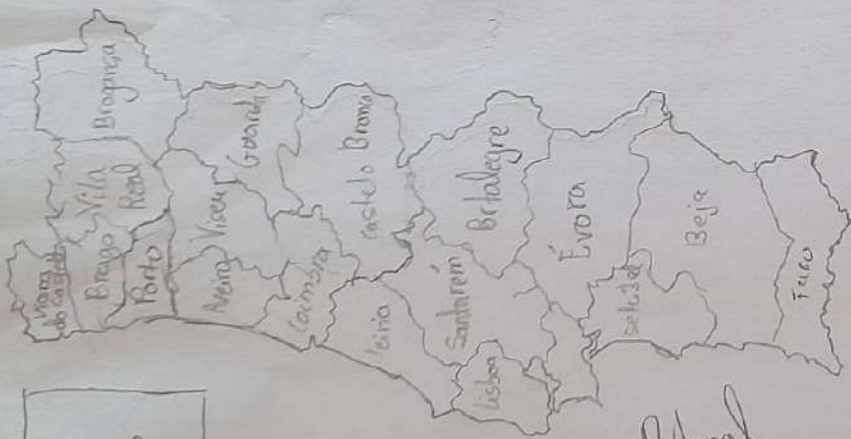 Viana
do Castelo
Braga
Vila
Real
Bragança
Porto
Aveiro
Viseu
Guarda
Coimbra
Castelo Branco
Leiria
Santarém
Lisboa
Évora
Beja
Faro